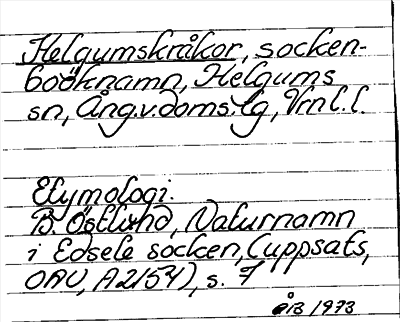 Helgumskråkor, socken-
boöknamn, Helgums
sn, Ång.v.doms.lg, Vrnl.l.
Etymologi.
B. Östlund, Naturnamn
i Edsele socken, (uppsats,
OAU, A2154), s. 7
åB 1973